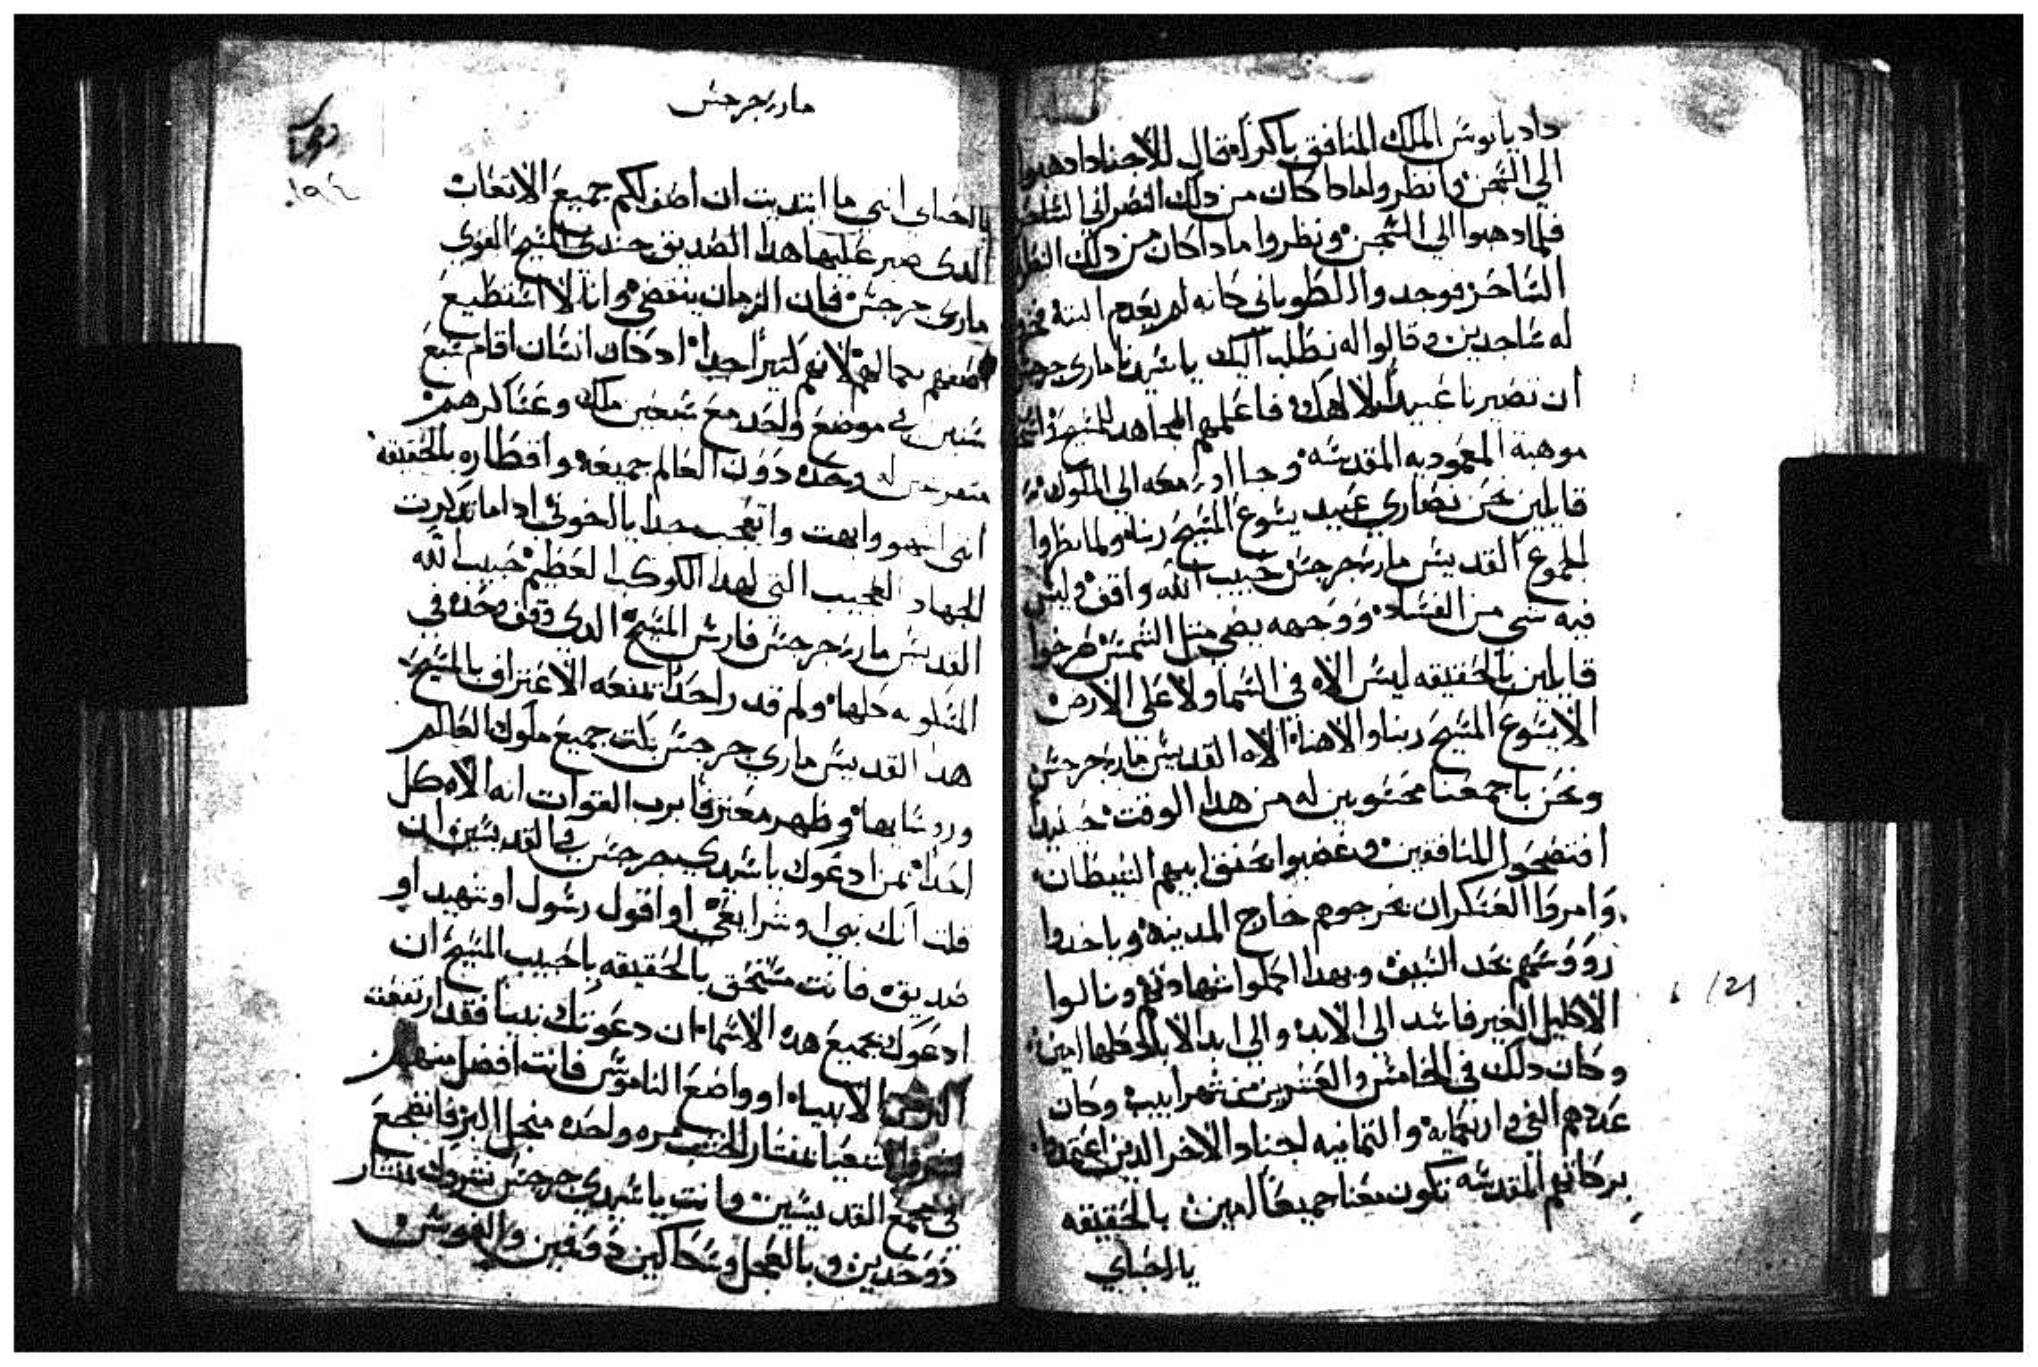 داديانوس الملك المنافق باكراً قال للاجناد ادهبوا
الي السجن وانظروا مادا كان من دلك النصراني الساحر
فلما دهبوا الي السجن ونظروا مادا كان من دلك
الساحر فوجدوا الطوباني كانه لم يعدم البته
له ساجدين وقالوا له نطلب اليك يا سيدنا ماري جرجس
ان تصيرنا عبيداً لالاهك فاعلمهم المجاهد
موهبة المعموديه المقدسه وجا اوليك معه الي الملوك
قايلين نحن نصاري عبيد يسوع المسيح ربنا ولما نظروا
الجموع القديس ماري جرجس حبيب الله واقف وليس
فيه شي من الفساد ووجهه يضي مثل الشمس صرخوا
قايلين بالحقيقه ليس الاه في السما ولا على الارض
الا يسوع المسيح ربنا والاهنا الاه القديس ماري جرجس
ونحن باجمعنا محسوبين له من هدا الوقت حينيد
افتضحوا المنافقين وغضبوا بحنق ابيهم الشيطان
وامروا العسكر ان يخرجوهم خارج المدينه وياخدوا
رووسهم بحد السيف وبهدا اكملوا شهادتهم ونالوا
الاكليل الغير فاسد الى الابد والي ابد الاباد كلها امين
وكان دلك في الخامس والعشرين من شهر ابيب وكان
عددهم الفي واربعمايه والتمانيه اجناد الاخر الدين اعتمدوا
بركاتهم المقدسه تكون معنا جميعاً امين بالحقيقه
يا احباي
ماري جرجس
يا احباي انني ما ابتديت ان اصف لكم جميع الاتعاب
الدي صبر عليها هدا الصديق جندي المسيح القوي
ماري جرجس فان الزمان ينقضي وانا لا استطيع
اصفهم بكمالهم لانهم كتير جداً اد كان انسان اقام سبع
سنين في موضع واحد مع سبعين ملك وعساكرهم
وحده دون العالم جميعه واقطاره بالحقيقه
انني وابهت واتعجب جداً يا اخوتي ادا ما تدكرت
الجهاد العجيب التي لهدا الكوكب العظيم حبيب الله
القديس ماري جرجس فارس المسيح الدي وقف وحده في
المسكونه كلها ولم قدر احداً يمنعه الاعتراف بالمسيح
هدا القديس ماري جرجس بكت جميع ملوك العالم
وروسايها وظهر معترفا برب القوات انه الاه كل
احد بمن ادعوك يا سيدي جرجس في القديسين ان
قلت انك نبي او اقول رسول او شهيد او
صديق فانت مستحق بالحقيقه يا حبيب المسيح ان
ادعوك بجميع هده الاسما ان دعوتك نبيا فقد ارتفعت
الانبيا او واضع الناموس فانت افضل منهم
اشعيا بمنشار الخشب مره واحده من اجل البر فانضجع
في مجمع القديسين وانت يا سيدي جرجس نشروك بمنشار
دو حدين وبالعجل وسكاكين دو فمين والفوس